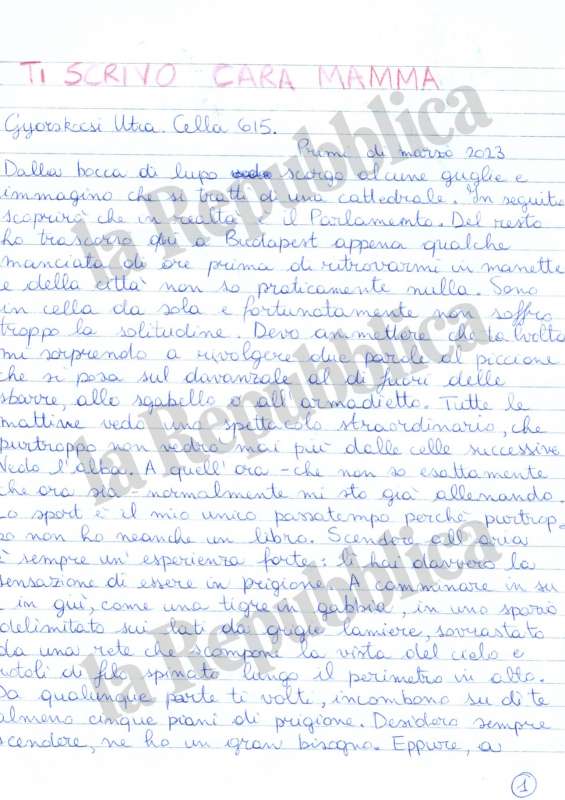 TI SCRIVO CARA MAMMA
Gyorskocsi Utca. Cella 615.
Primi di marzo 2023
Dalla bocca di lupo scorgo alcune guglie e
immagino che si tratti di una cattedrale. In seguito
scoprirò che in realtà è il Parlamento. Del resto
ho trascorso qui a Budapest appena qualche
manciata di ore prima di ritrovarmi in manette
e della città non so praticamente nulla. Sono
in cella da sola e fortunatamente non soffro
troppo la solitudine. Devo ammettere che talvolta
mi sorprendo a rivolgere due parole al piccione
che si posa sul davanzale al di fuori delle
sbarre, allo sgabello o all'armadietto. Tutte le
mattine vedo uno spettacolo straordinario, che
purtroppo non vedrò mai più dalle celle successive.
Vedo l'alba. A quell'ora - che non so esattamente
che ora sia - normalmente mi sto già allenando.
Lo sport è il mio unico passatempo perché purtrop-
po non ho neanche un libro. Scendere all'aria
è sempre un'esperienza forte: lì hai davvero la
sensazione di essere in prigione. A camminare in su
e in giù, come una tigre in gabbia, in uno spazio
delimitato sui lati da grigie lamiere, sovrastato
da una rete che scompone la vista del cielo e
rotoli di filo spinato lungo il perimetro in alto.
Da qualunque parte ti volti, incombono su di te
almeno cinque piani di prigione. Desidero sempre
scendere, ne ho un gran bisogno. Eppure, a
1
la Repubblica
la Repubblica
la Repubblica